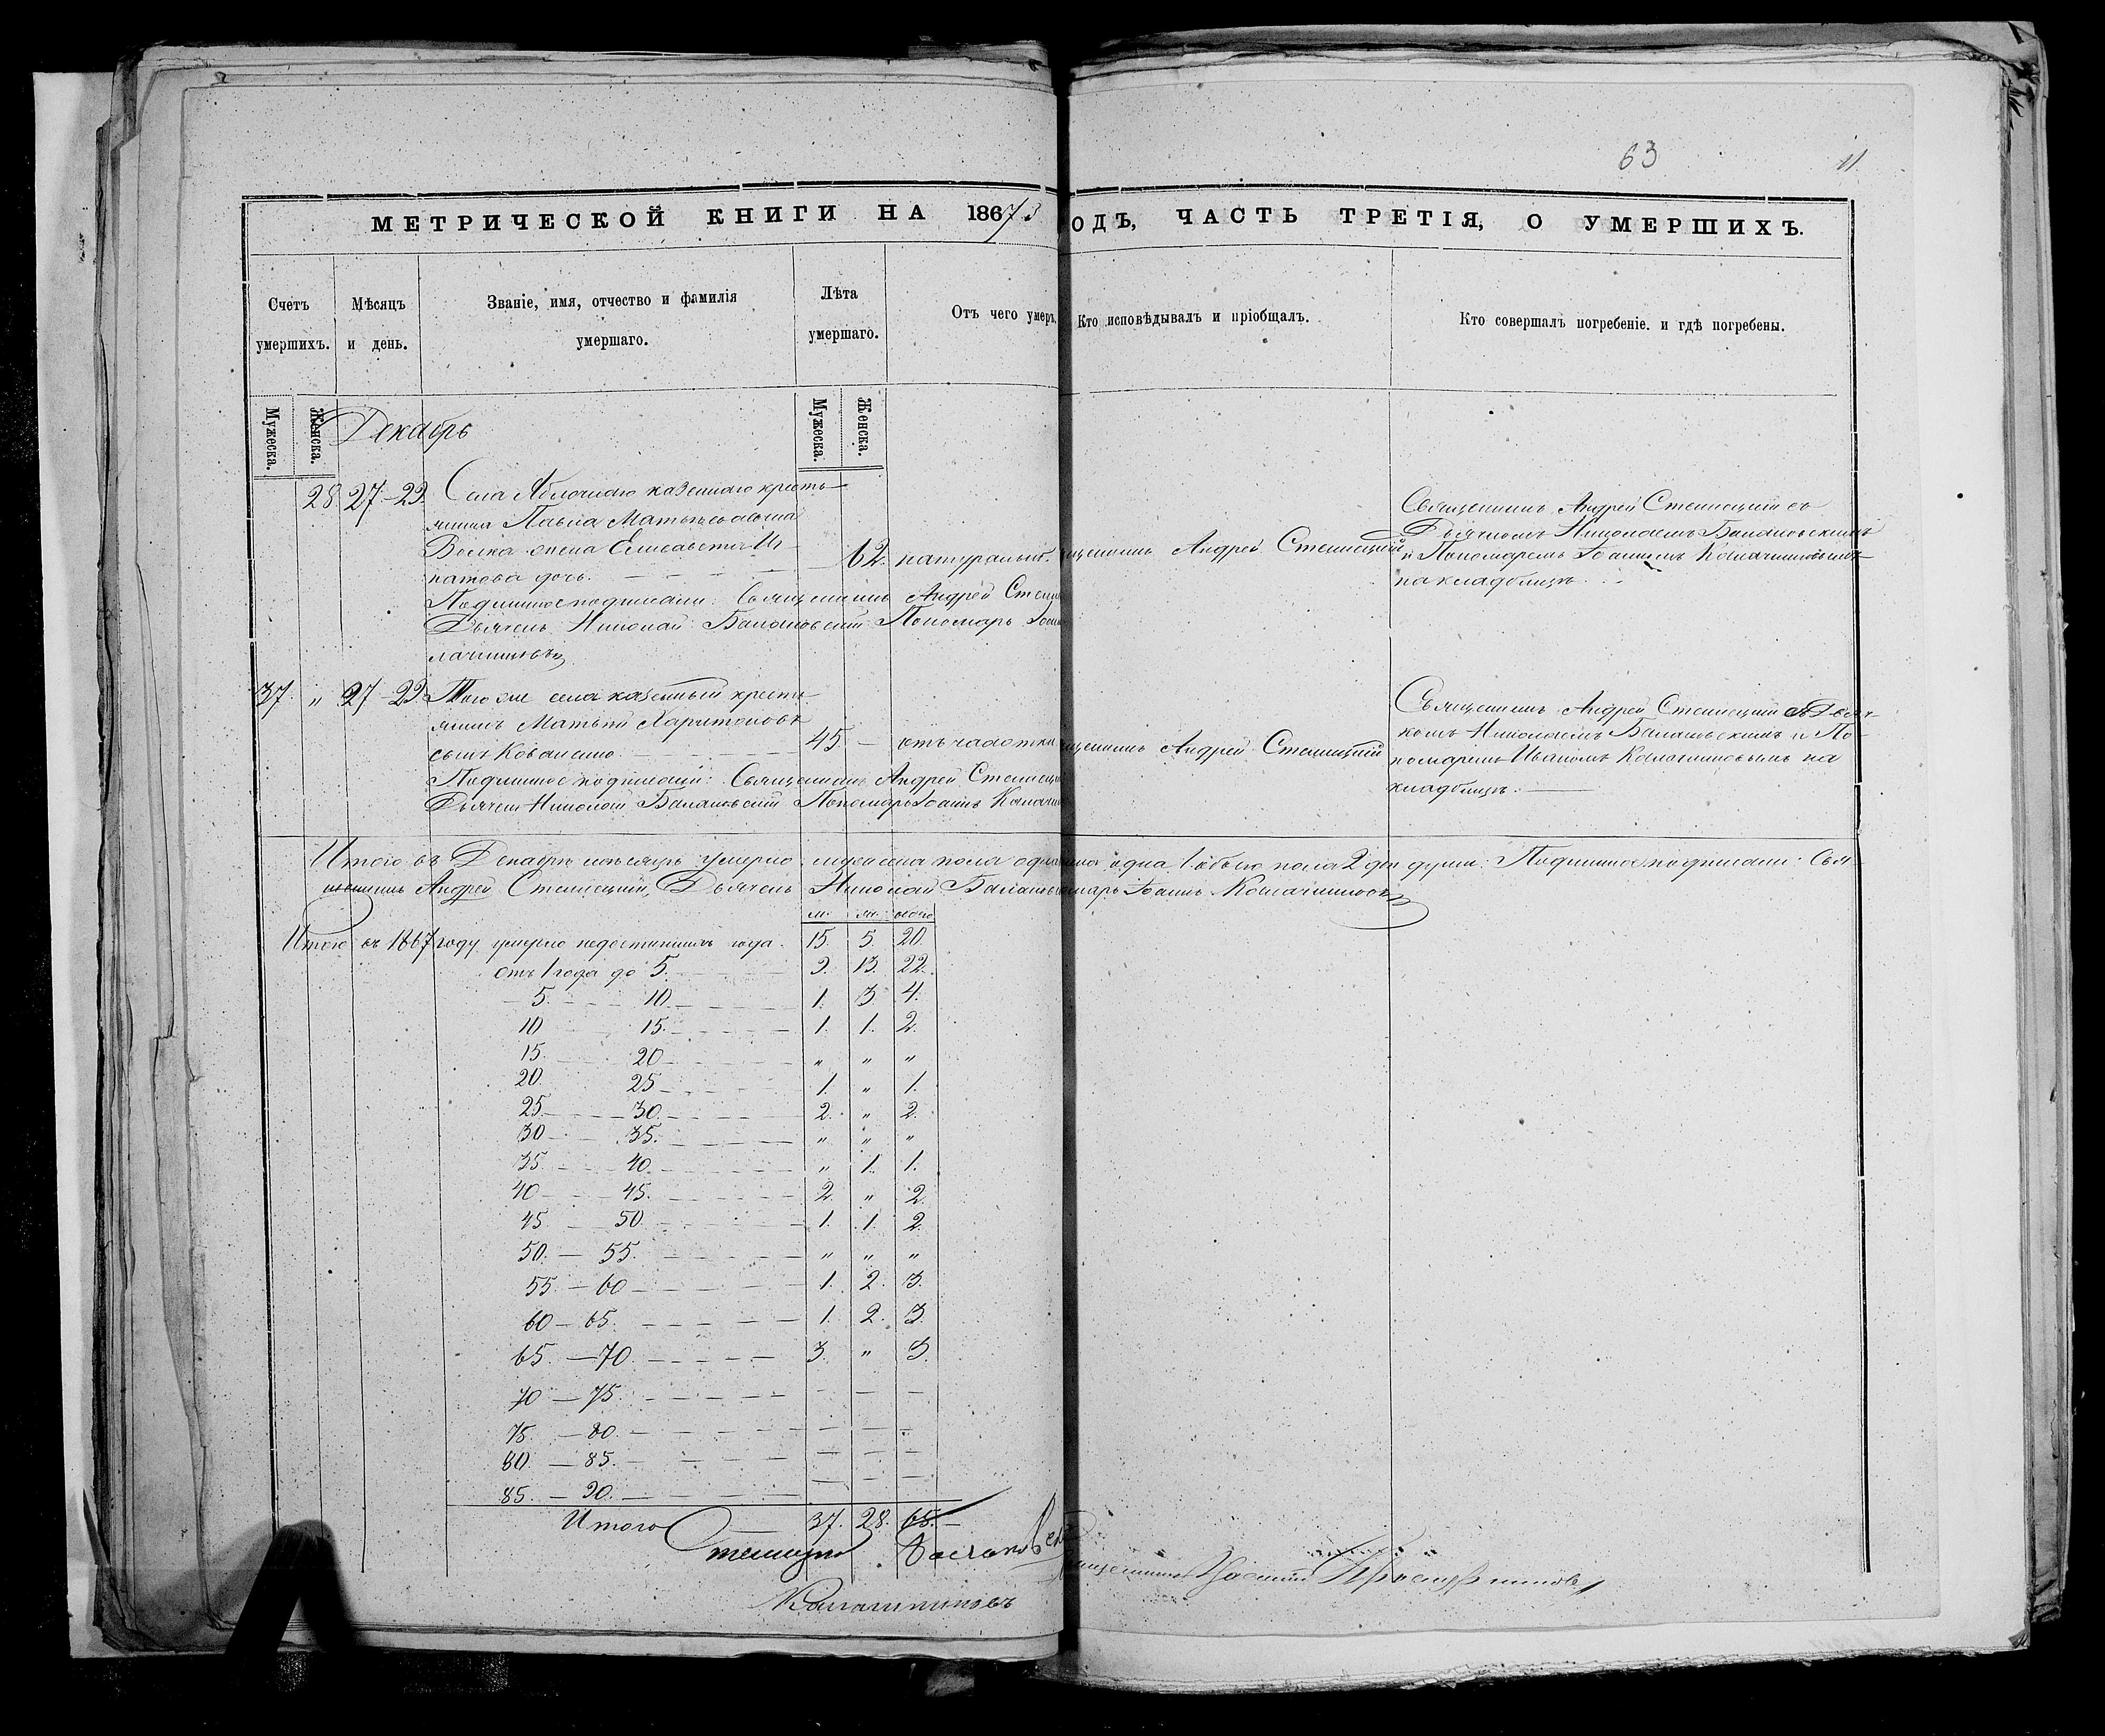 63
11
МЕТРИЧЕСКОЙ КНИГИ НА 1867
ОДЪ, ЧАСТЬ ТРЕТІЯ, О УМЕРШИХЪ.
Счетъ умершихъ.
Мѣсяцъ и день.
Званіе, имя, отчество и фамилія умершаго.
Лѣта умершаго.
Отъ чего умеръ.
Кто исповѣдывалъ и пріобщалъ.
Кто совершалъ погребеніе. и гдѣ погребены.
Мужеска.
Женска.
Мужеска.
Женска.
Декабрь
28. 27-29. Села Яблочнаго казеннаго кресть-
янина Павла Матвѣева сына
жена Елисавета Иг-
натова дочь. 62. натурально. Андрей Стенецкій
Священникъ Андрей Стенецкій съ
Дьячкомъ Николаемъ Балановскимъ
и Пономаремъ Іоанномъ
на кладбищѣ.
Подлинное подписали: Священникъ Андрей
Дьячекъ Николай Балановскій Пономарь
37. " 27-29. Того же села казенный кресть-
янинъ Матвѣй Харитоновъ
сынъ Коваленко. 45. — отъ чахотки Андрей Стенецкій
Священникъ Андрей Стенецкій съ Дьяч-
комъ Николаемъ Балановскимъ и По-
номаремъ Иваномъ на
кладбищѣ.
Подлинное подписали: Священникъ Андрей
Дьячекъ Николай Балановскій Пономарь Іоаннъ
Итого въ Декабрѣ мѣсяцѣ умерло мужеска пола одна 1 обоего пола 2 двѣ души: Подлинное подписали: Свя-
щенникъ Андрей Стенецкій, Дьячекъ Николай Іоаннъ
м. ж. обоего
Итого въ 1867 году умерло недостигшихъ года. 15. 5. 20.
отъ 1 года до 5. 9. 13. 22.
5. 10. 1. 3. 4.
10 15. 1. 1. 2.
15. 20 " " "
20. 25 1. " 1.
25. 30. 2. " 2.
30 35. " " "
35 40. " 1. 1.
40 45. 2. " 2.
45. 50. 1. 1. 2.
50. — 55. " " "
55. — 60 1. 2. 3.
60 — 65. 1. 2. 3.
65. — 70. 3. " 3.
70 — 75. — — —
75. — 80. — — —
80. — 85. — — —
85. — 90. — — —
Итого 37. 28. 65.